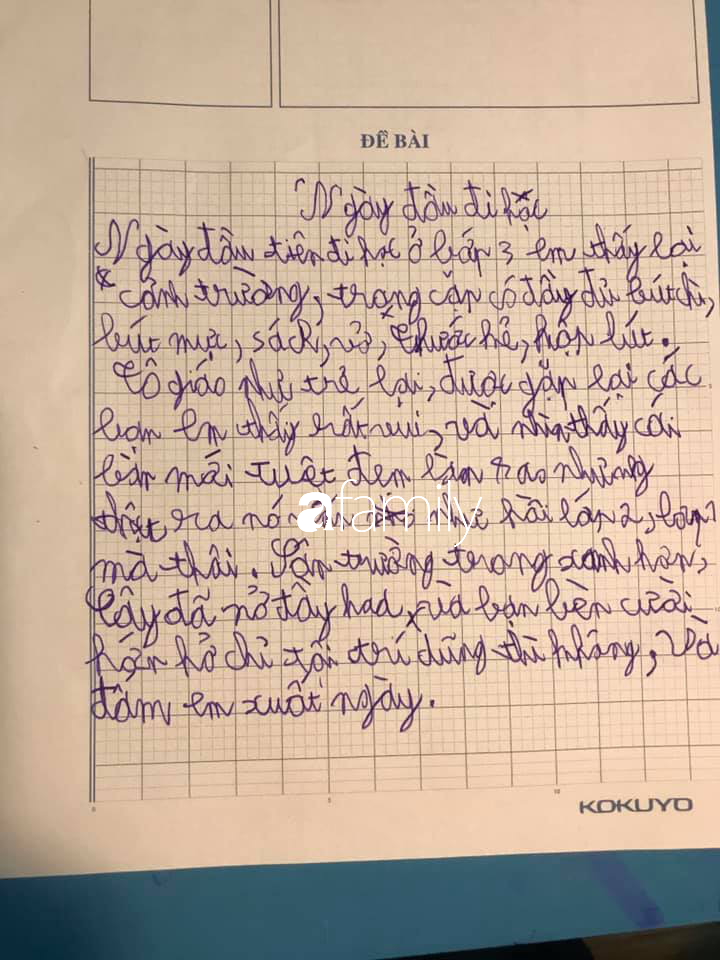 ĐỀ BÀI
Ngày đầu đi học
Ngày đầu tiên đi học ở lớp 3 em thấy lại
cảnh trường, trong cặp có đầy đủ bút chì,
bút mực, sách, vở, thước kẻ, hộp bút.
Cô giáo như trẻ lại, được gặp lại các
bạn em thấy rất vui, và nhìn thấy cái
bàn mới tuyệt đẹp làm sao nhưng
thật ra nó như hồi lớp 2, lớp 1
mà thôi. Sân trường trong xanh hơn,
Cây đã nở đầy hoa, và bạn bèn cười
hớn hở chỉ tội trí dũng thì không, Và
đấm em suốt ngày.
afamily
KOKUYO